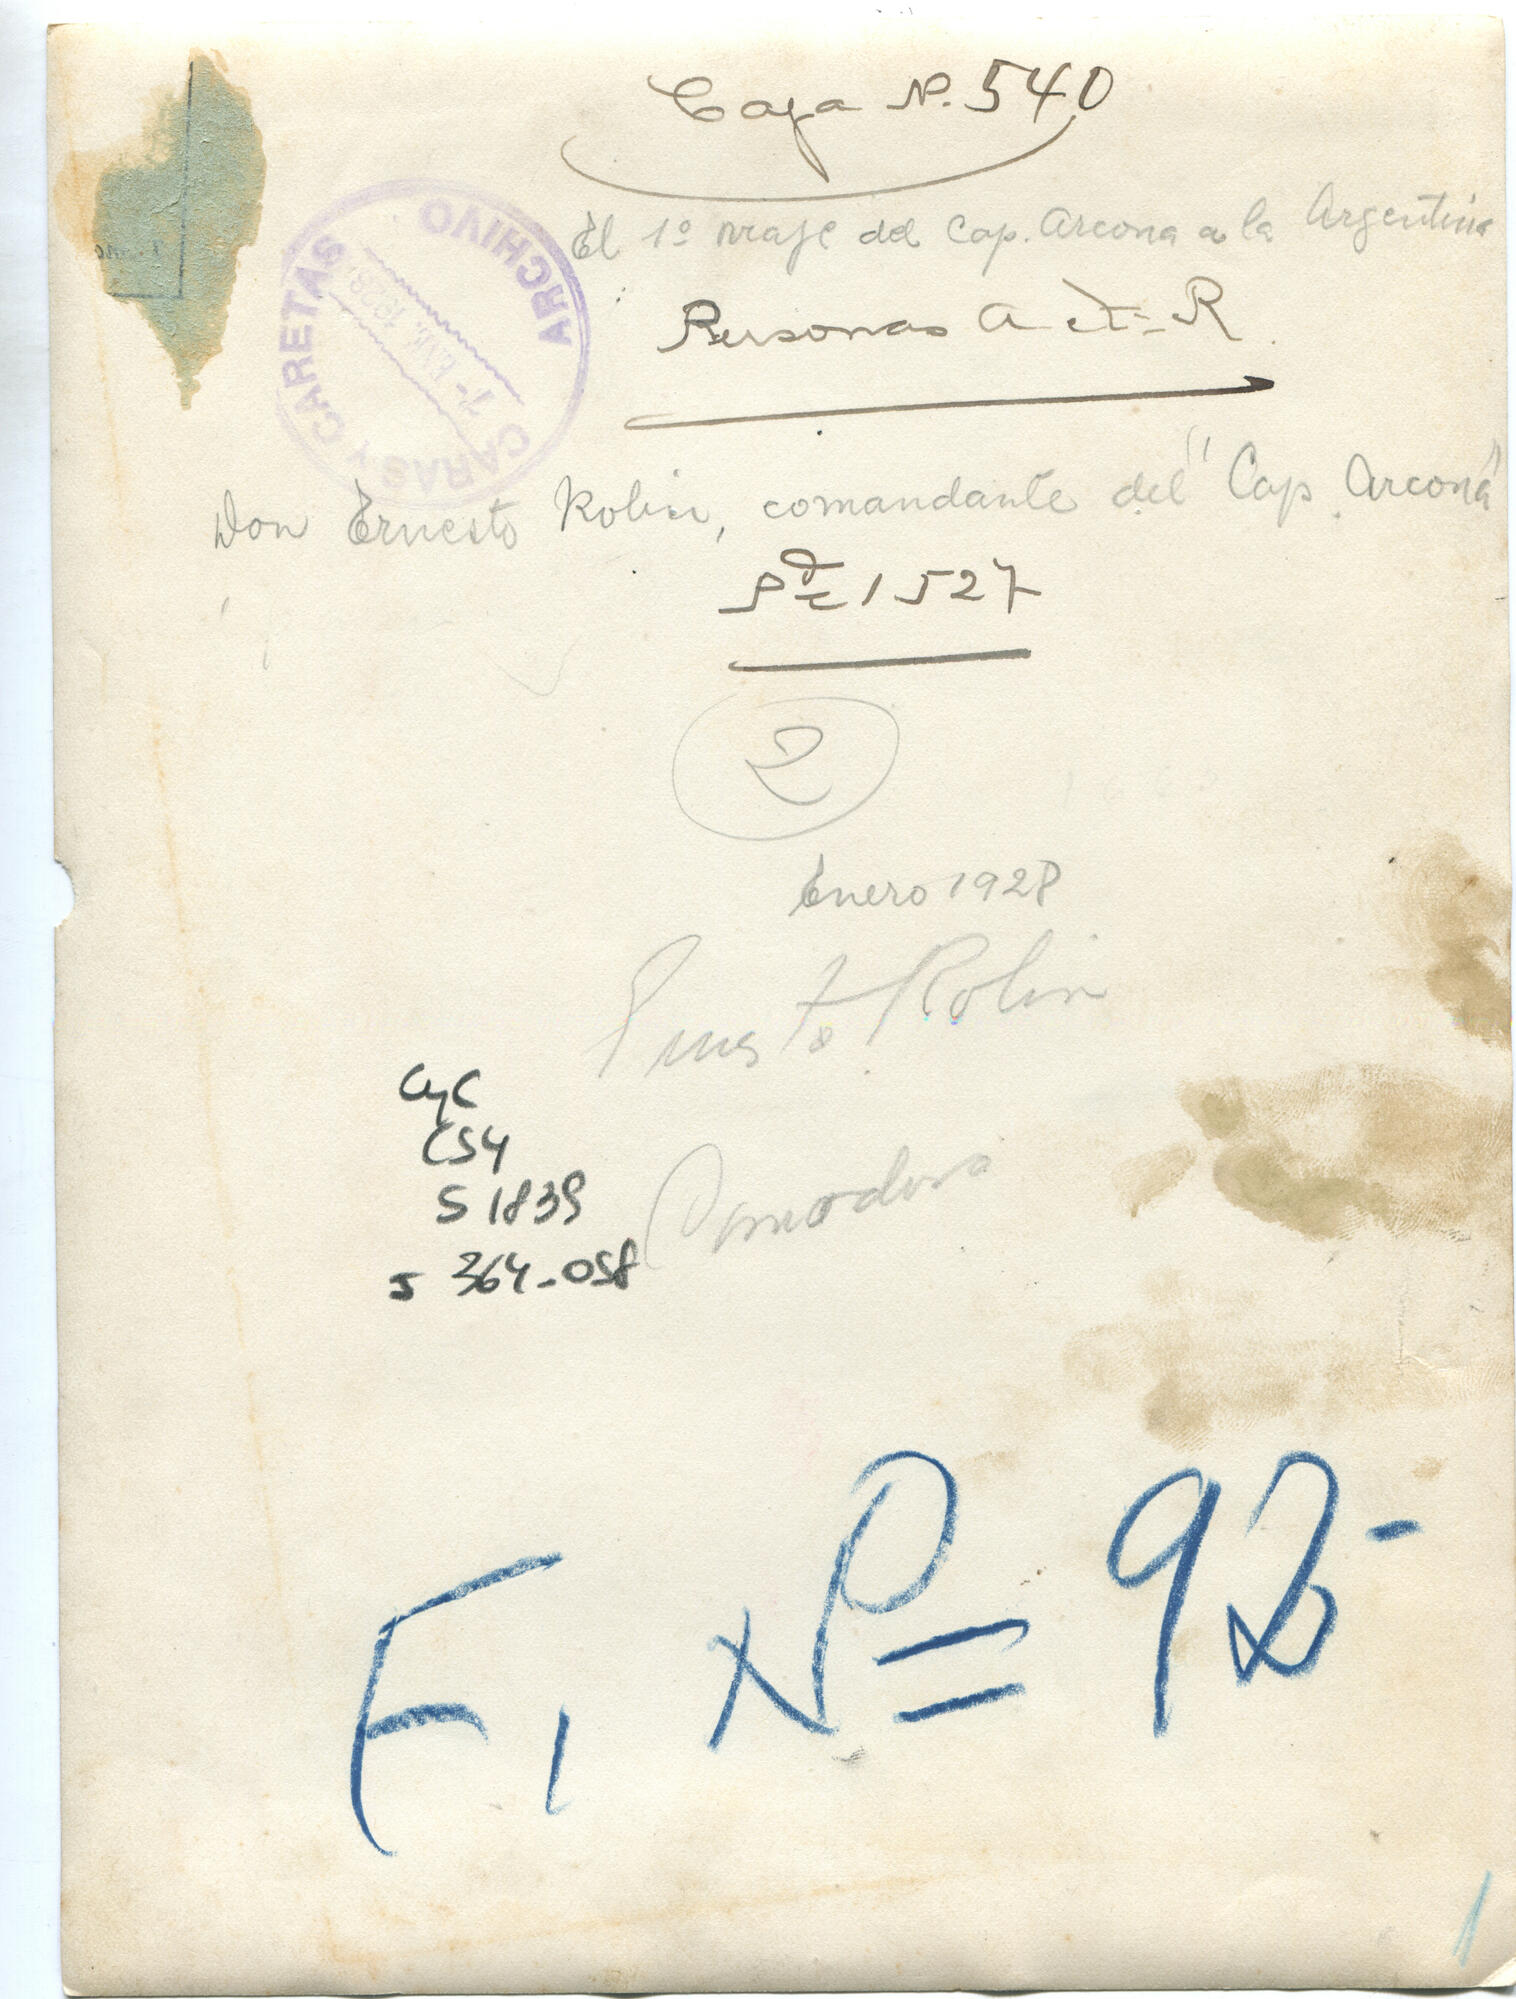 Caja Nº. 540
El 1º viaje del Cap. Arcona a la Argentina
Personas A R
CARAS Y CARETAS
ARCHIVO
7 - ENE. 1928
Don Ernesto Rolin, comandante del "Cap Arcona"
1527
2
Enero 1928
Ernesto Rolin
CyC
CS4
S 1839
s 364-058
Comodoro
F, Nº = 92-
1